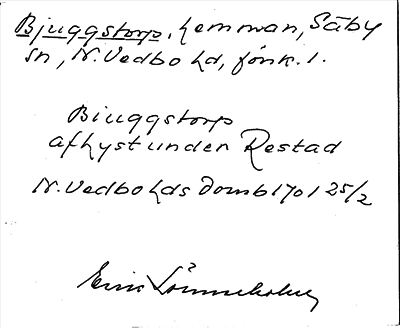 Bjuggstorp, hemman, Säby
sn, N. Vedbo hd, Jönk. l.
Biuggstorp
afhyst under Restad
N. Vedbo hds Domb 1701 25/2
Erik